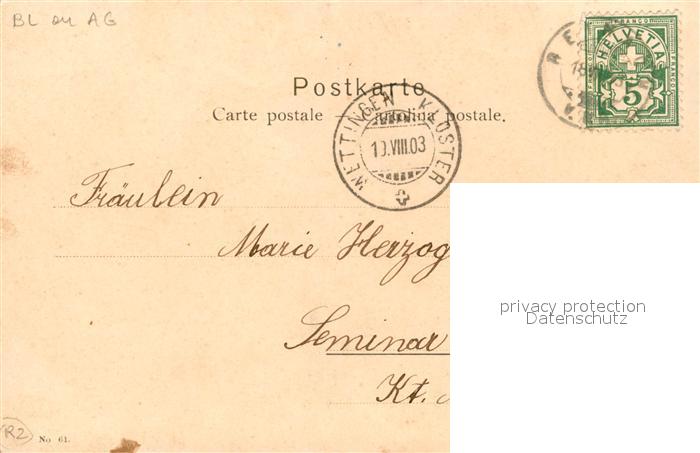 BL ou AG
FRANCO
HELVETIA
5
Postkarte
Carte postale — Cartolina postale.
WETTINGEN KLOSTER
10.VIII.03
Fräulein
Marie Herzog
privacy protection
Datenschutz
Seminar
Kt.
R2
No 61.